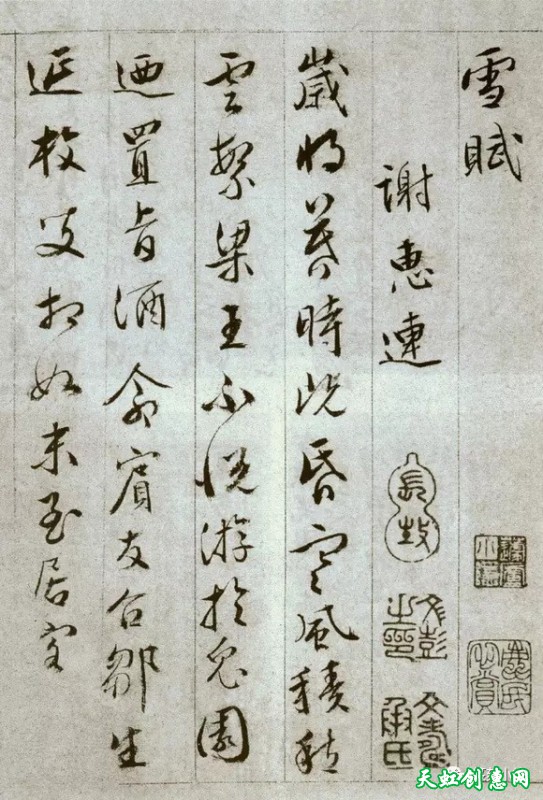 雪賦
謝惠連
歲將暮時既昏寒風積愁
雲繁梁王不悅游於兔園
迺置旨酒命賓友召鄒生
延枚叟相如末至居客
文彭之印
文壽承氏
天虹创惠网